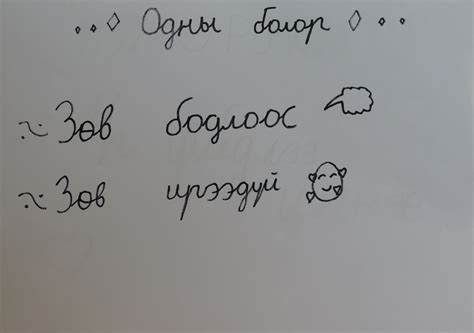 Одны болор
Зөв бодлоос
Зөв ирээдүй